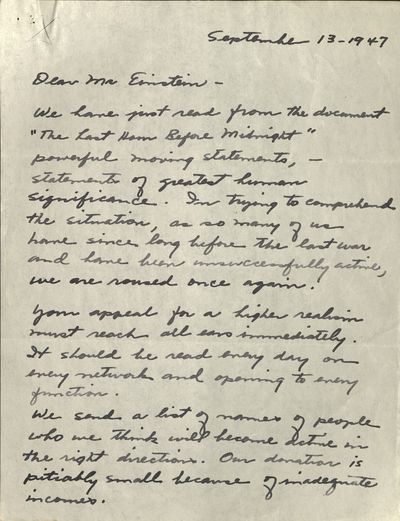 September 13-1947
Dear Mr Einstein -
We have just read from the document
"The Last Hour Before Midnight"
powerful moving statements, -
statements of greatest human
significance. In trying to comprehend
the situation, as so many of us
have since long before the last war
and have been unsuccessfully active,
we are roused once again.
Your appeal for a higher realism
must reach all ears immediately.
It should be read every day on
every network and opening to every
function.
We send a list of names of people
who we think will become active in
the right directions. Our donation is
pitiably small because of inadequate
incomes.